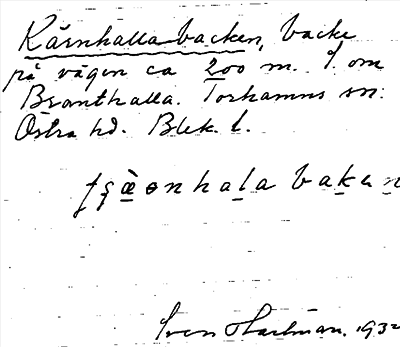 Kärnhalla backen, backe
på vägen ca 200 m. S. om
Branthalla. Torhamns sn.
Östra hd. Blek. l.
Sven Hartman. 1932